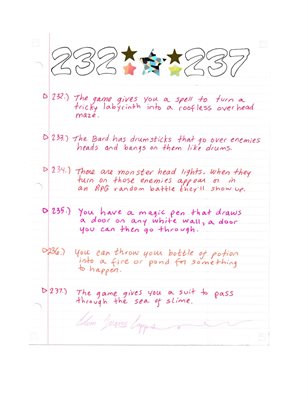 232 237
232.) The game gives you a spell to turn a
tricky labyrinth into a roofless overhead
maze.
233.) The Bard has drumsticks that go over enemies
heads and bangs on them like drums.
234.) There are monster head lights. When they
turn on those enemies appear or in
an RPG random battle they'll show up.
235.) You have a magic pen that draws
a door on any white wall, a door
you can then go through.
236.) You can throw your bottle of potion
into a fire or pond for something
to happen.
237.) The game gives you a suit to pass
through the sea of slime.